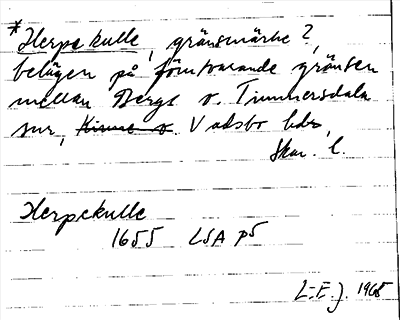 *Herpekulle, gränsmärke?,
belägen på förutvarande gränsen
mellan Bergs o. Timmersdala
snr, Kinne o. Vadsbo hdr,
Skar. l.
Herpekulle
1655 LSA P5
L-E. J. 1965